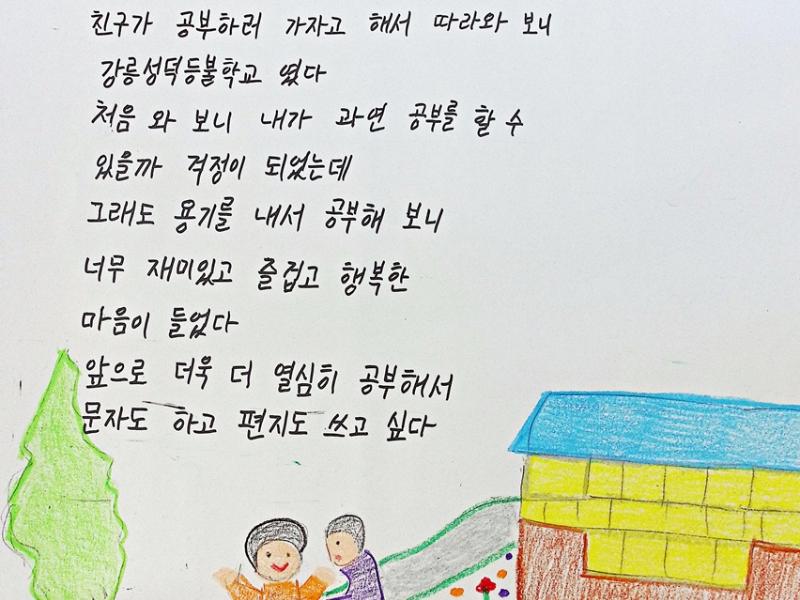 친구가 공부하러 가자고 해서 따라와 보니
강릉성덕등불학교 였다
처음 와 보니 내가 과연 공부를 할 수
있을까 걱정이 되었는데
그래도 용기를 내서 공부해 보니
너무 재미있고 즐겁고 행복한
마음이 들었다
앞으로 더욱 더 열심히 공부해서
문자도 하고 편지도 쓰고 싶다